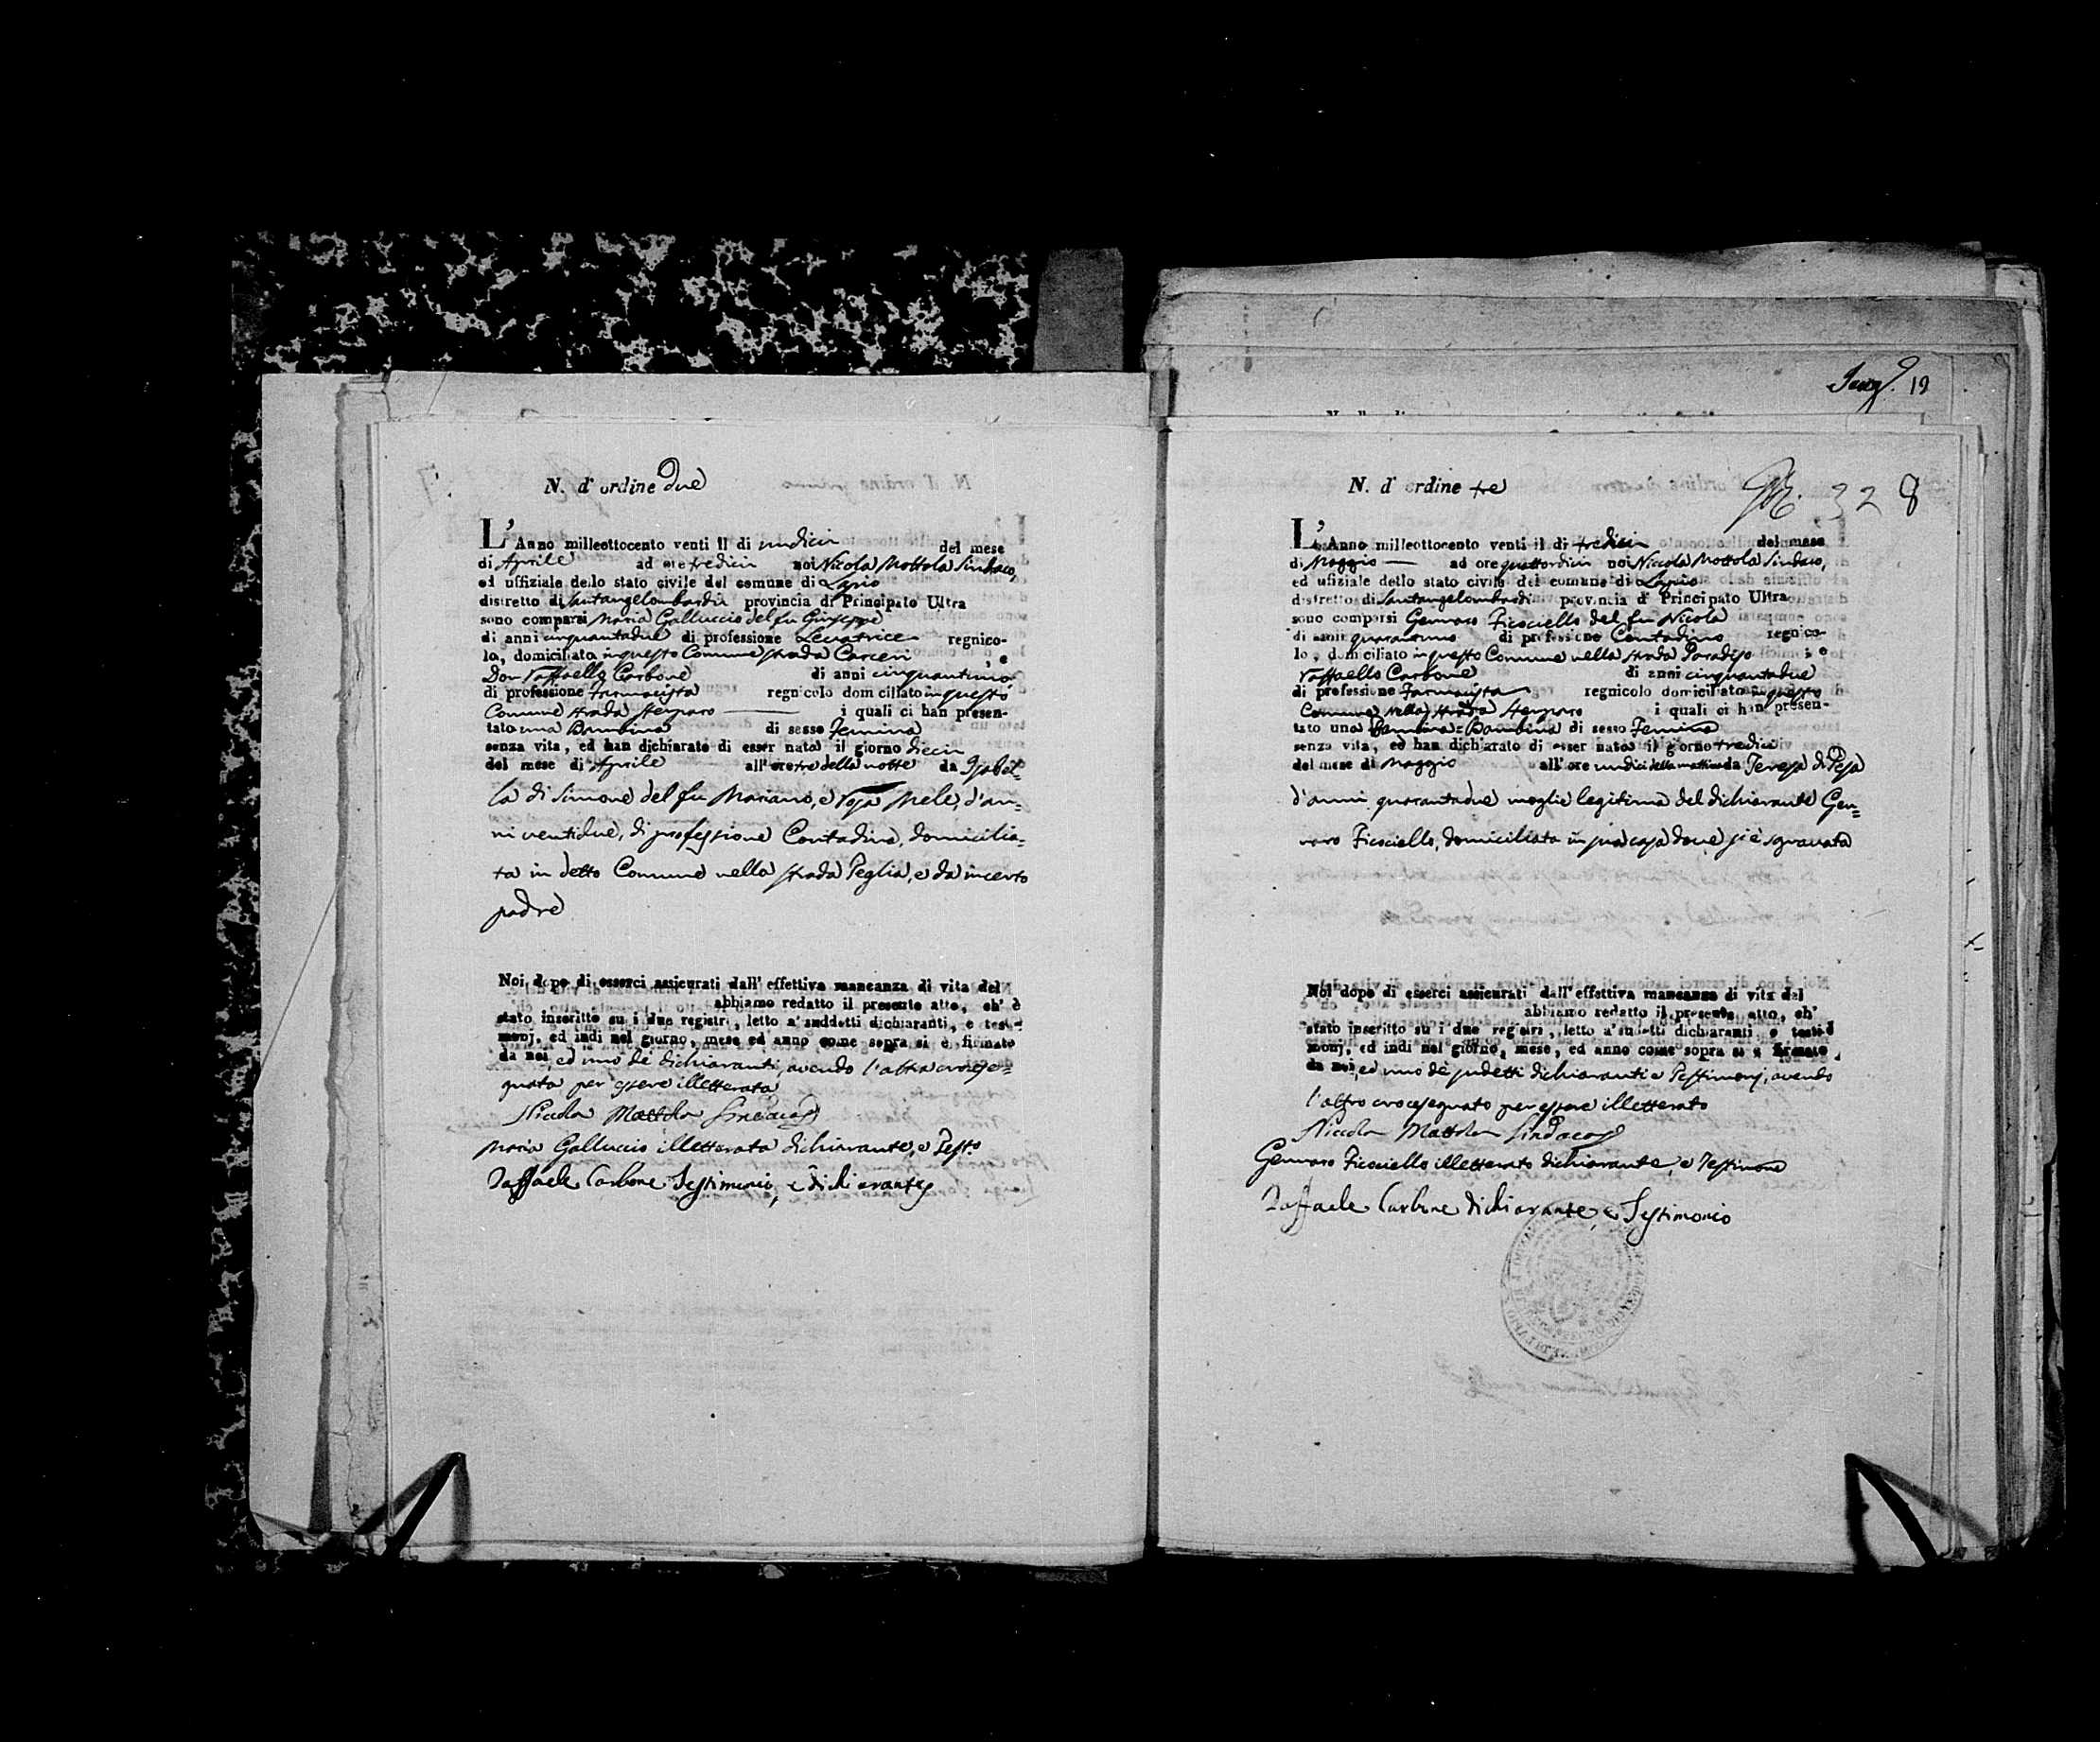 N. d' ordine Due
L' Anno milleottocento venti il di undici del mese
di Aprile ad ore tredici noi Nicola Mottola Sindaco,
ed uffiziale dello stato civile del comune di Lapio
distretto di Santangelombardi provincia di Principato Ultra
sono comparsi Maria Galluccio del fu Giuseppe
di anni cinquantadue di professione Levatrice regnico-
lo, domiciliato in questo Comune strada Carceri , e
Don Raffaello Carbone di anni cinquantuno
di professione Farmacista regnicolo domiciliato in questo
Comune strada i quali ci han presen-
tato una Bambina di sesso Femina
senza vita, ed han dichiarato di esser nata il giorno dieci
del mese di Aprile all' ore tre della notte da Isabel-
la di Simone del fu Mariano, e Rosa Mele, d'an=
ni ventidue, di professione Contadina, domicilia=
ta in detto Comune nella strada Peglia, e da incerto
padre
Noi dopo di esserci assicurati dall' effettiva mancanza di vita del
abbiamo redatto il presente atto, ch' è
stato inscritto su i due registri, letto a' suddetti dichiaranti, e testi-
monj, ed indi nel giorno, mese ed anno come sopra si è firmato
da noi, ed uno de' dichiaranti, avendo l'altra crocese=
gnata per essere illetterata
Nicola Mottola Sindaco
Maria Galluccio illetterata dichiarante, e Test.º
Raffaele Carbone Testimonio, e dichiarante
Jung. 19
N. d' ordine tre
328
L' Anno milleottocento venti il di tredici del mese
di Maggio ad ore quattordici noi Nicola Mottola Sindaco,
ed ufiziale dello stato civile del comune di Lapio
distretto di Santangelombardi provincia d' Principato Ultra
sono comparsi Gennaro Ficociello del fu Nicola
di anni quarantuno di professione Contadino regnico-
lo, domiciliato in questo Comune nella strada Paradiso ; e
Raffaello Carbone di anni cinquantadue
di professione Farmacista regnicolo domiciliato in questo
Comune nella strada i quali ci han presen-
tato una Bambina Bambina di sesso Femina
senza vita, ed han dichiarato di esser nata il giorno tredici
del mese di Maggio all' ore undici della mattina da Teresa di Pesa
d'anni quarantadue moglie legitima del dichiarante Gen=
naro Ficociello, domiciliata in sua casa dove si è sgravata
Noi dopo di esserci assicurati dall' effettiva mancanza di vita del
abbiamo redatto il presente atto, ch'
stato inscritto su i due registri, letto a' sudetti dichiaranti e testi-
monj, ed indi nel giorno, mese, ed anno come sopra si è firmato
da noi, ed uno de' sudetti dichiaranti e Testimonj, avendo
l'altro crocesegnato per essere illetterato
Nicola Mottola Sindaco
Gennaro Ficociello illetterato dichiarante, e Testimone
Raffaele Carbone dichiarante, e Testimonio